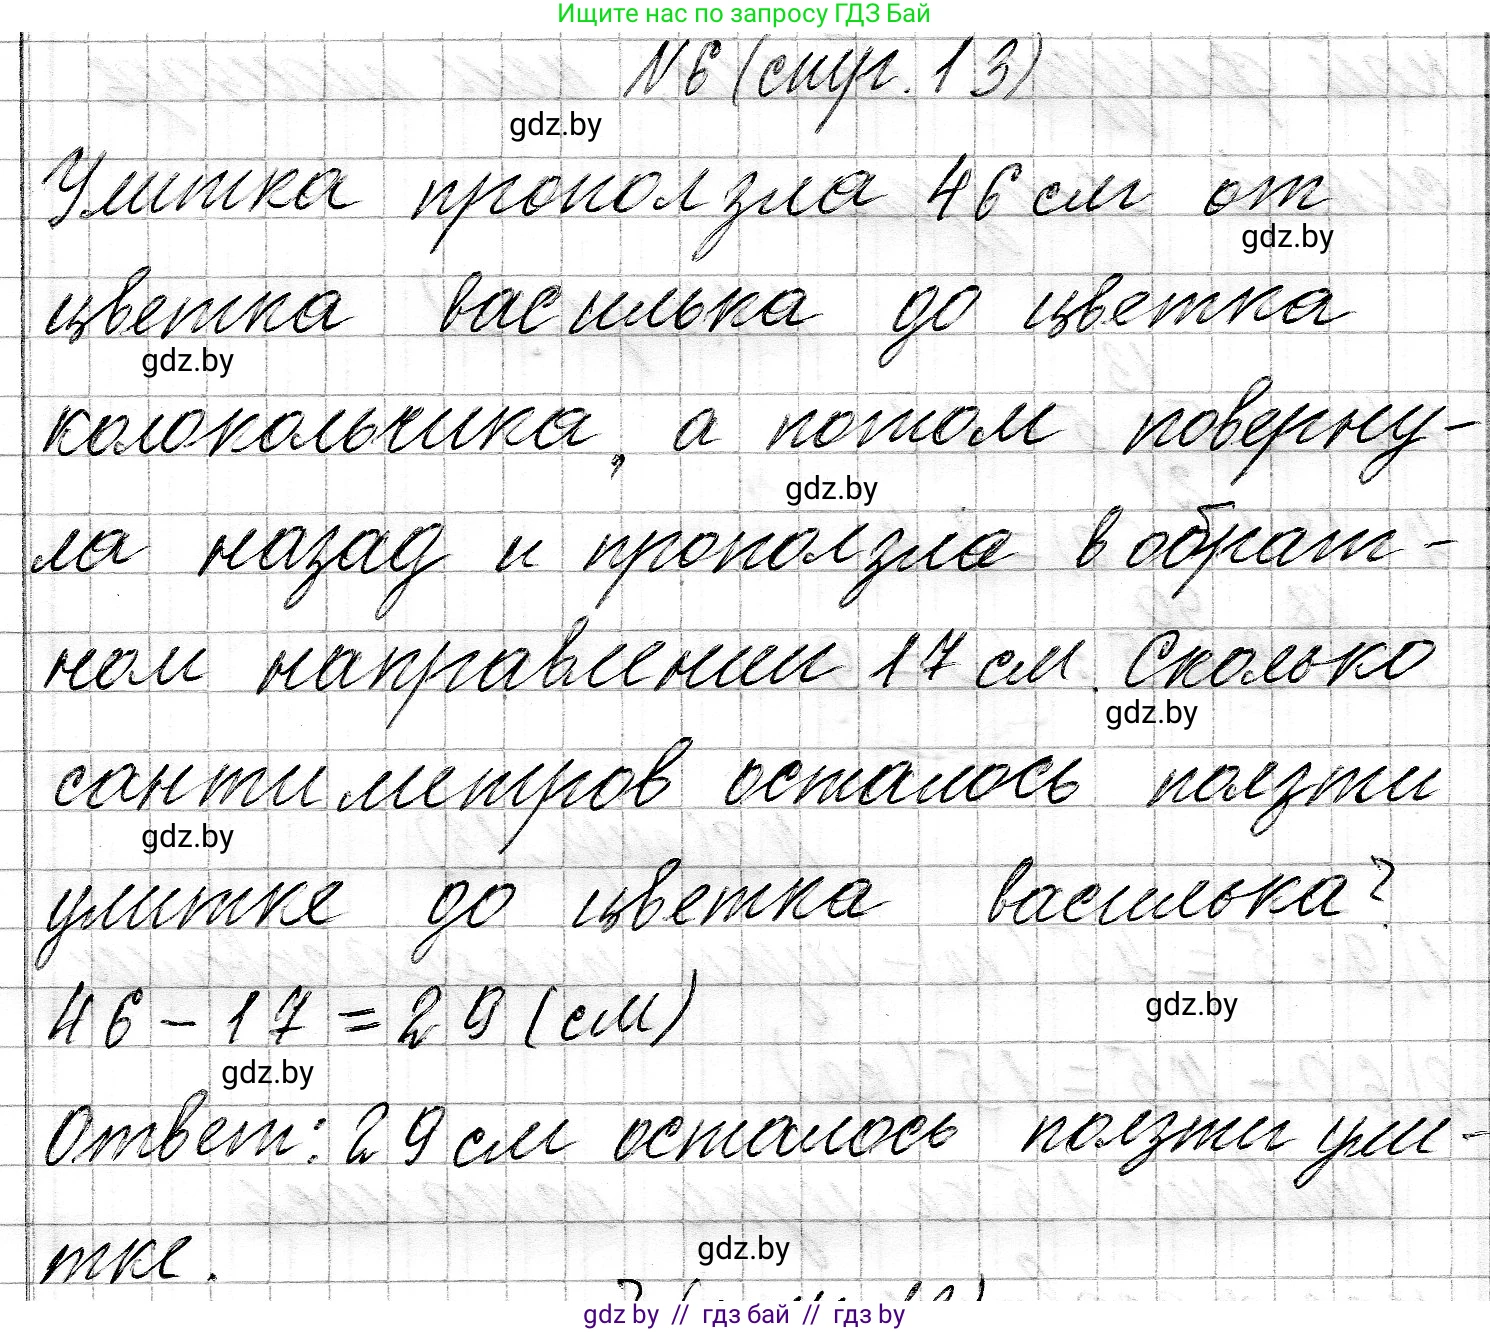 Ищите нас по запросу ГДЗ Бай
№6 (стр. 13)
gdz.by
Улитка проползла 46 см от
gdz.by
цветка василька до цветка
gdz.by
колокольчика, а потом поверну-
gdz.by
ла назад и проползла в обрат-
ном направлении 17 см. Сколько
gdz.by
сантиметров осталось ползти
gdz.by
улитке до цветка василька?
gdz.by
46 - 17 = 29 (см)
gdz.by
Ответ: 29 см осталось ползти ули-
тке.
gdz.by
gdz.by // гдз бай // гдз by